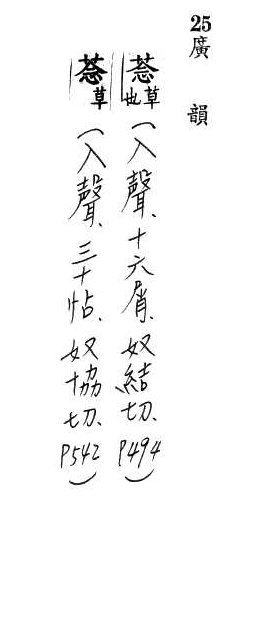 25廣韻
菍草也（入聲、十六屑、奴結切、P494）
菍草（入聲、三十帖、奴協切、P542）